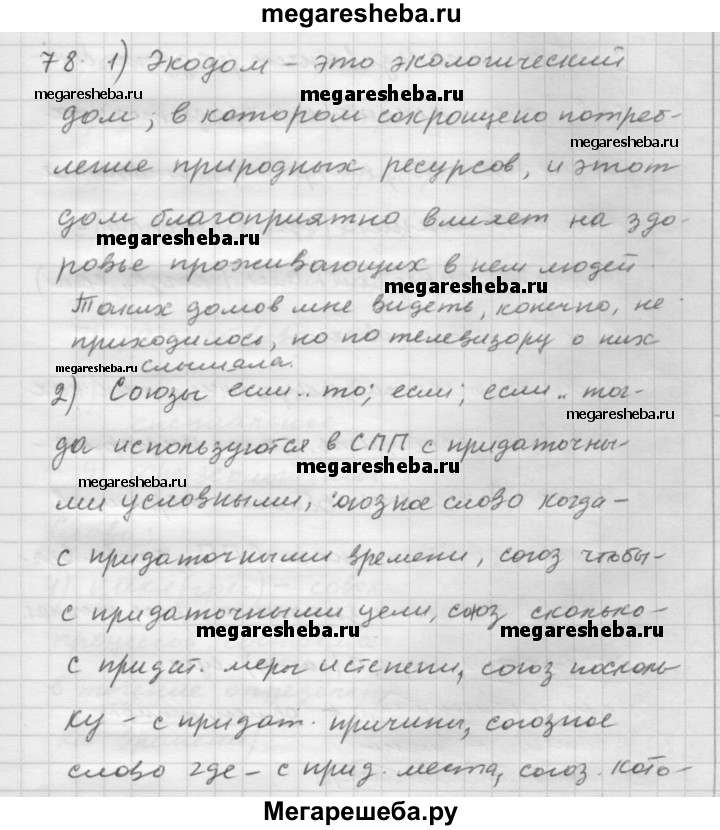 megaresheba.ru
78. 1) Экодом – это экологический
megaresheba.ru megaresheba.ru
дом, в котором сокращено потреб-
megaresheba.ru
ление природных ресурсов, и этот
дом благоприятно влияет на здо-
megaresheba.ru
ровье проживающих в нем людей.
Таких домов мне видеть, конечно, не
приходилось, но по телевизору о них
megaresheba.ru слышала.
2) Союзы если.. то; если; если.. тог-
megaresheba.ru
да используются в СПП с придаточны-
megaresheba.ru
ми условными, союзное слово когда –
с придаточными времени, союз чтобы –
с придаточными цели, союз сколько –
megaresheba.ru megaresheba.ru
с придат. меры и степени, союз посколь
ку – с придат. причины, союзное
слово где – с прид. места, союз. кото-
Мегарешеба.ру